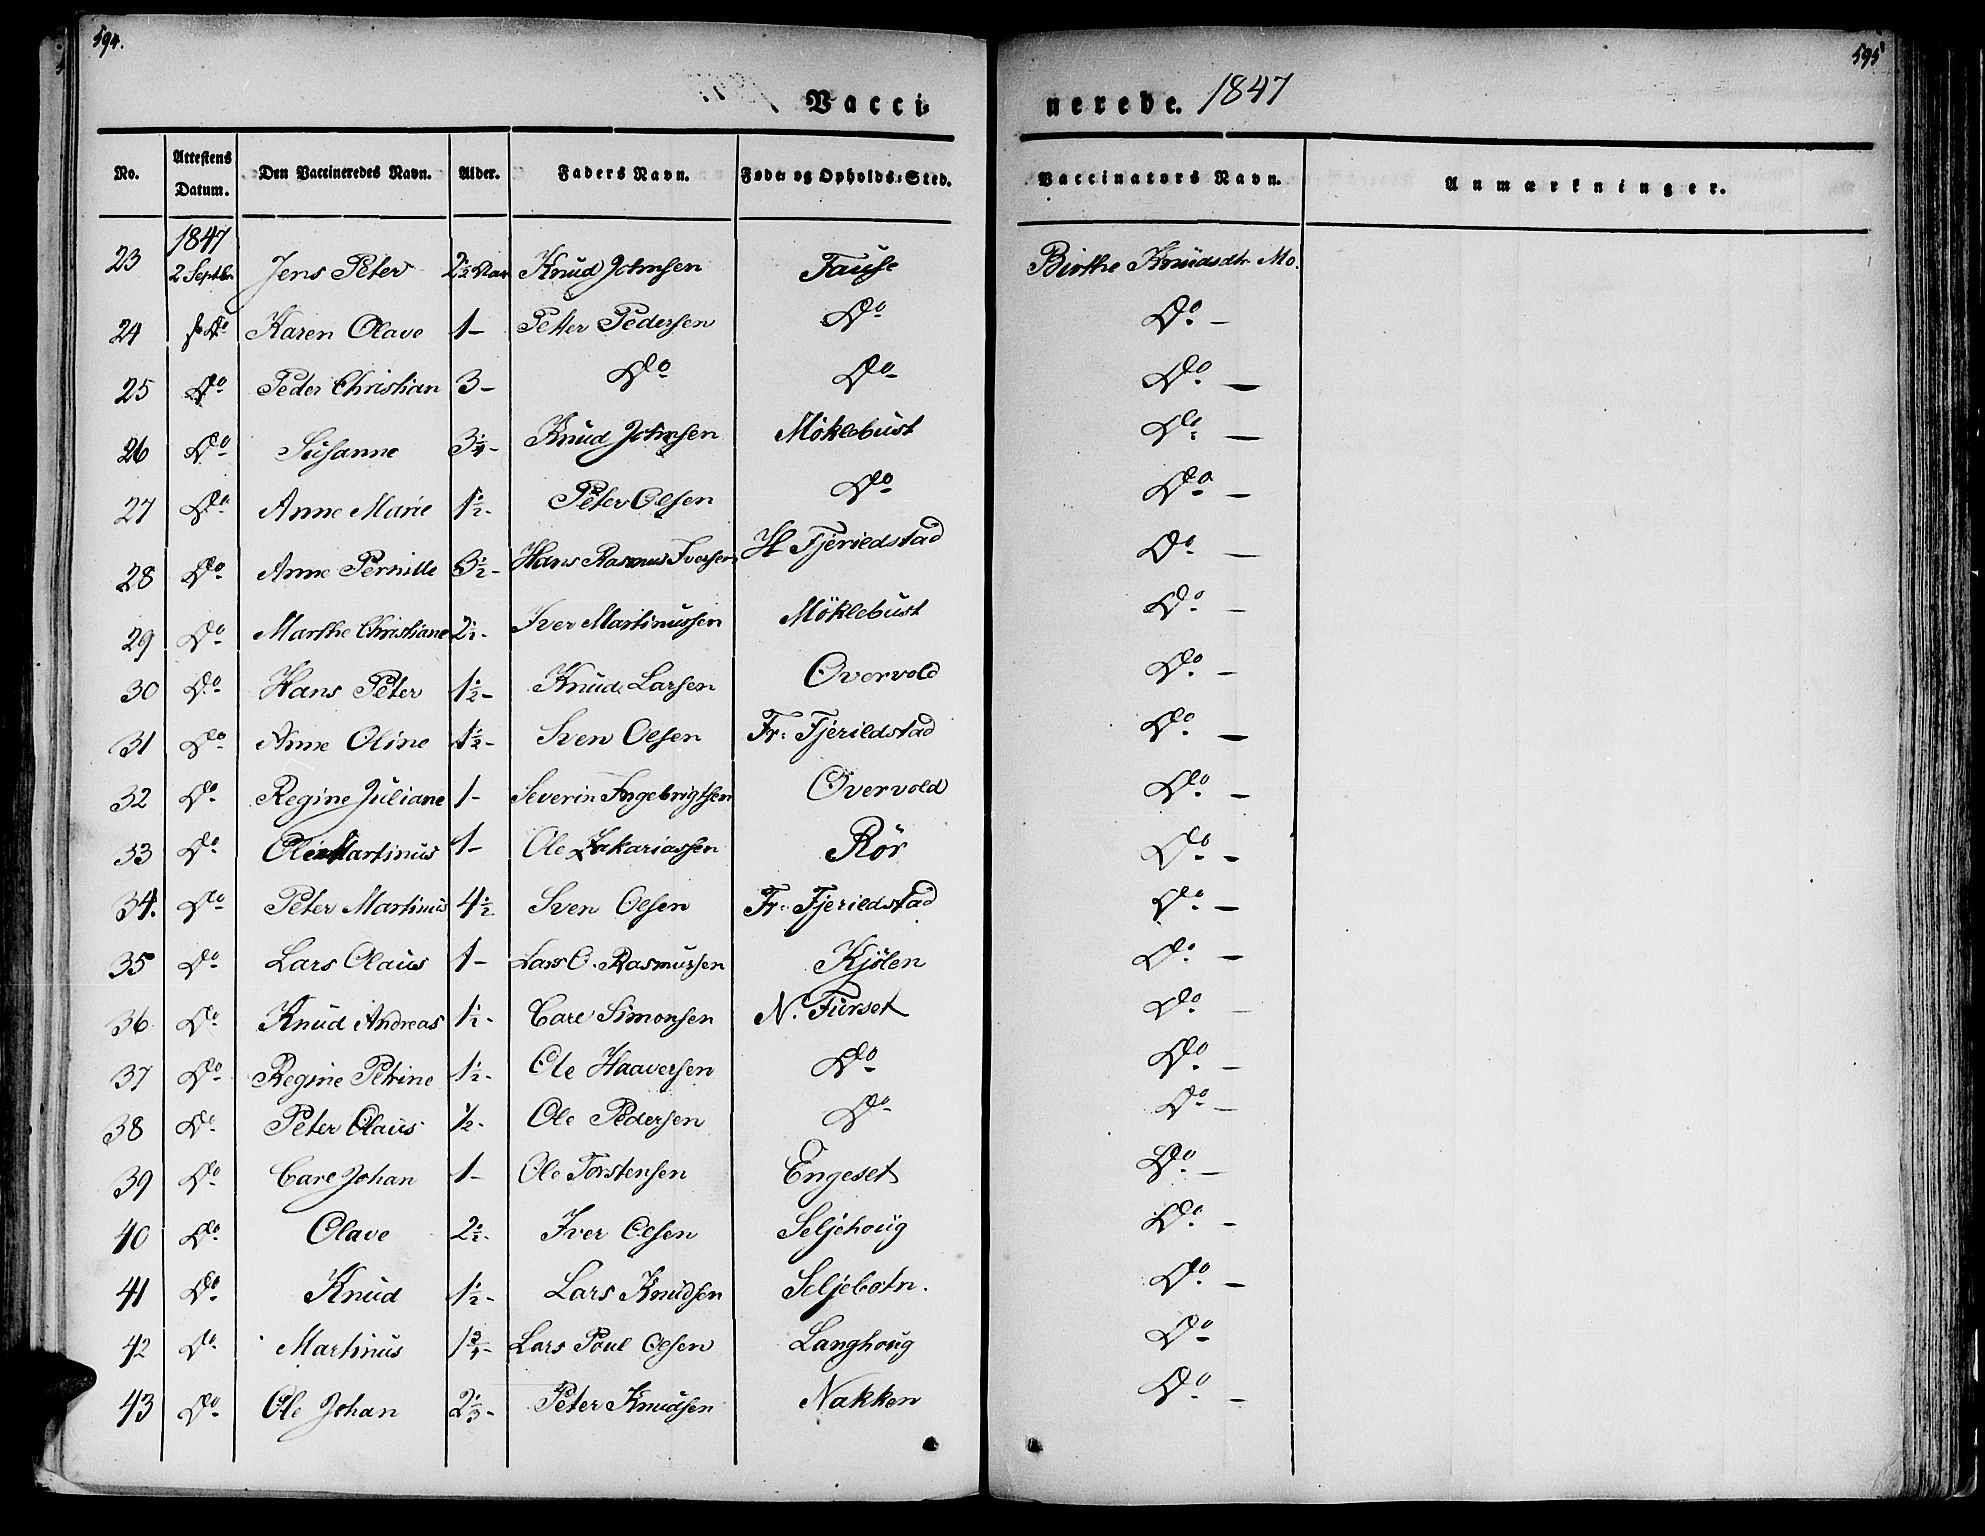 594.
595
Vacci
nerede. 1847
No. | Attestens Datum. | Den Vaccineredes Navn. | Alder. | Faders Navn. | Føde- og Opholds-Sted. | Vaccinators Navn. | Anmærkninger.
1847
23 | 2 Septbr. | Jens Peter | 2½ Aar | Knud Johnsen | Fause | Birthe Knudsdtr Mo.
24 | Do | Karen Olave | 1 – | Petter Pedersen | Do | Do –
25 | Do | Peder Christian | 3 – | Do | Do | Do –
26 | Do | Susanne | 3¼ – | Knud Johnsen | Möklebust | Do –
27 | Do | Anne Marie | 1½ – | Peter Olsen | Do | Do –
28 | Do | Anne Pernille | 3½ – | Hans Rasmus Iversen | H Fjerildstad | Do –
29 | Do | Marthe Christiane | 2½ – | Iver Martinussen | Möklebust | Do –
30 | Do | Hans Peter | 1½ – | Knud Larsen | Overvold | Do –
31 | Do | Anne Oline | 1½ – | Sven Olsen | Fr: Fjerildstad | Do –
32 | Do | Regine Juliane | 1 – | Severin Ingebrigtsen | Overvold | Do –
33 | Do | Ole Martinus | 1 – | Ole Zakariassen | Rör | Do –
34. | Do | Peter Martinus | 4½ | Sven Olsen | Fr: Fjerildstad | Do –
35 | Do | Lars Olaus | 1 – | Lars O. Rasmussen | Kjölen | Do –
36 | Do | Knud Andreas | 1½ – | Carl Simonsen | N. Furset | Do –
37 | Do | Regine Petrine | 1½ – | Ole Haaversen | Do | Do –
38 | Do | Peter Olaus | ½ – | Ole Pedersen | Do | Do –
39 | Do | Carl Johan | 1 – | Ole Torstensen | Engeset | Do –
40 | Do | Olave | 2½ – | Iver Olsen | Seljehoug | Do –
41 | Do | Knud | 1½ – | Lars Knudsen | Seljebotn. | Do –
42 | Do | Martinus | 1¾ – | Lars Poul Olsen | Langhoug | Do
43 | Do | Ole Johan | 2⅓ – | Peter Knudsen | Nakken | Do –